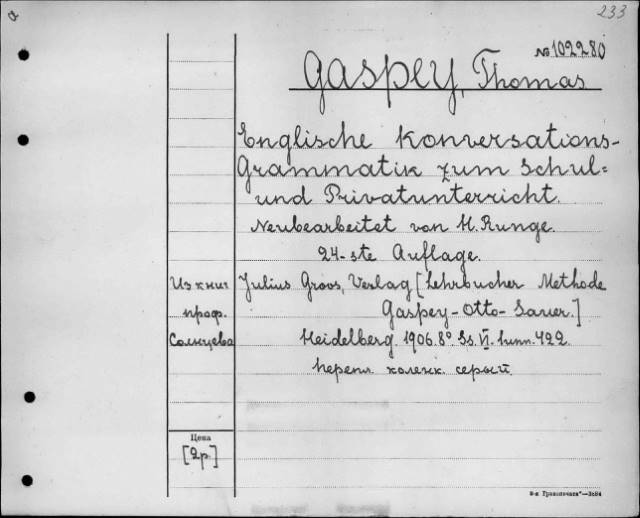 233
№ 102280
Gaspey, Thomas
Englische Konversations-
Grammatik zum Schul-
und Privatunterricht.
Neubearbeitet von H. Runge.
24-ste Auflage.
Из книг
проф.
Солнцева
Julius Groos, Verlag [Lehrbucher Methode
Gaspey-Otto-Sauer.]
Heidelberg. 1906. 8° Ss. VI. 422.
перепл коленк. серый.
Цена
[2р.]